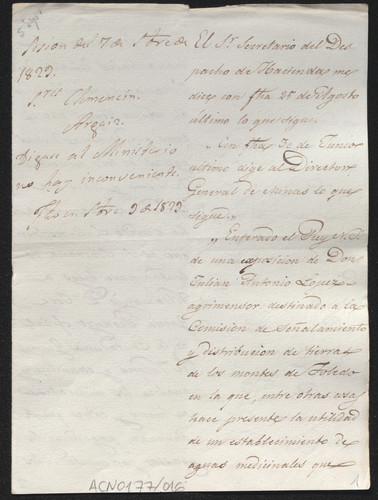 Sesion del 7 de Stre de
1829.
Sres Clemencín.
Arguiz.
Digase al Ministerio
no hay inconveniente.
Fho en Stre 9 de 1829.
El Sr. Secretario del Des
pacho de Hacienda me
dice con fha 25 de Agosto
ultimo lo que sigue.
"Con fha 30 de Junio
ultimo dige al Director
General de minas lo que
sigue"
"Enterado el Rey N. S.
de una exposicion de Don
Julian Antonio Lopez
agrimensor destinado a la
Comision de Señalamiento
y distribucion de tierras
de los montes de Toledo
en la que, entre otras cosas,
hace presente la utilidad
de un establecimiento de
aguas medicinales que
ACN0177/016
1